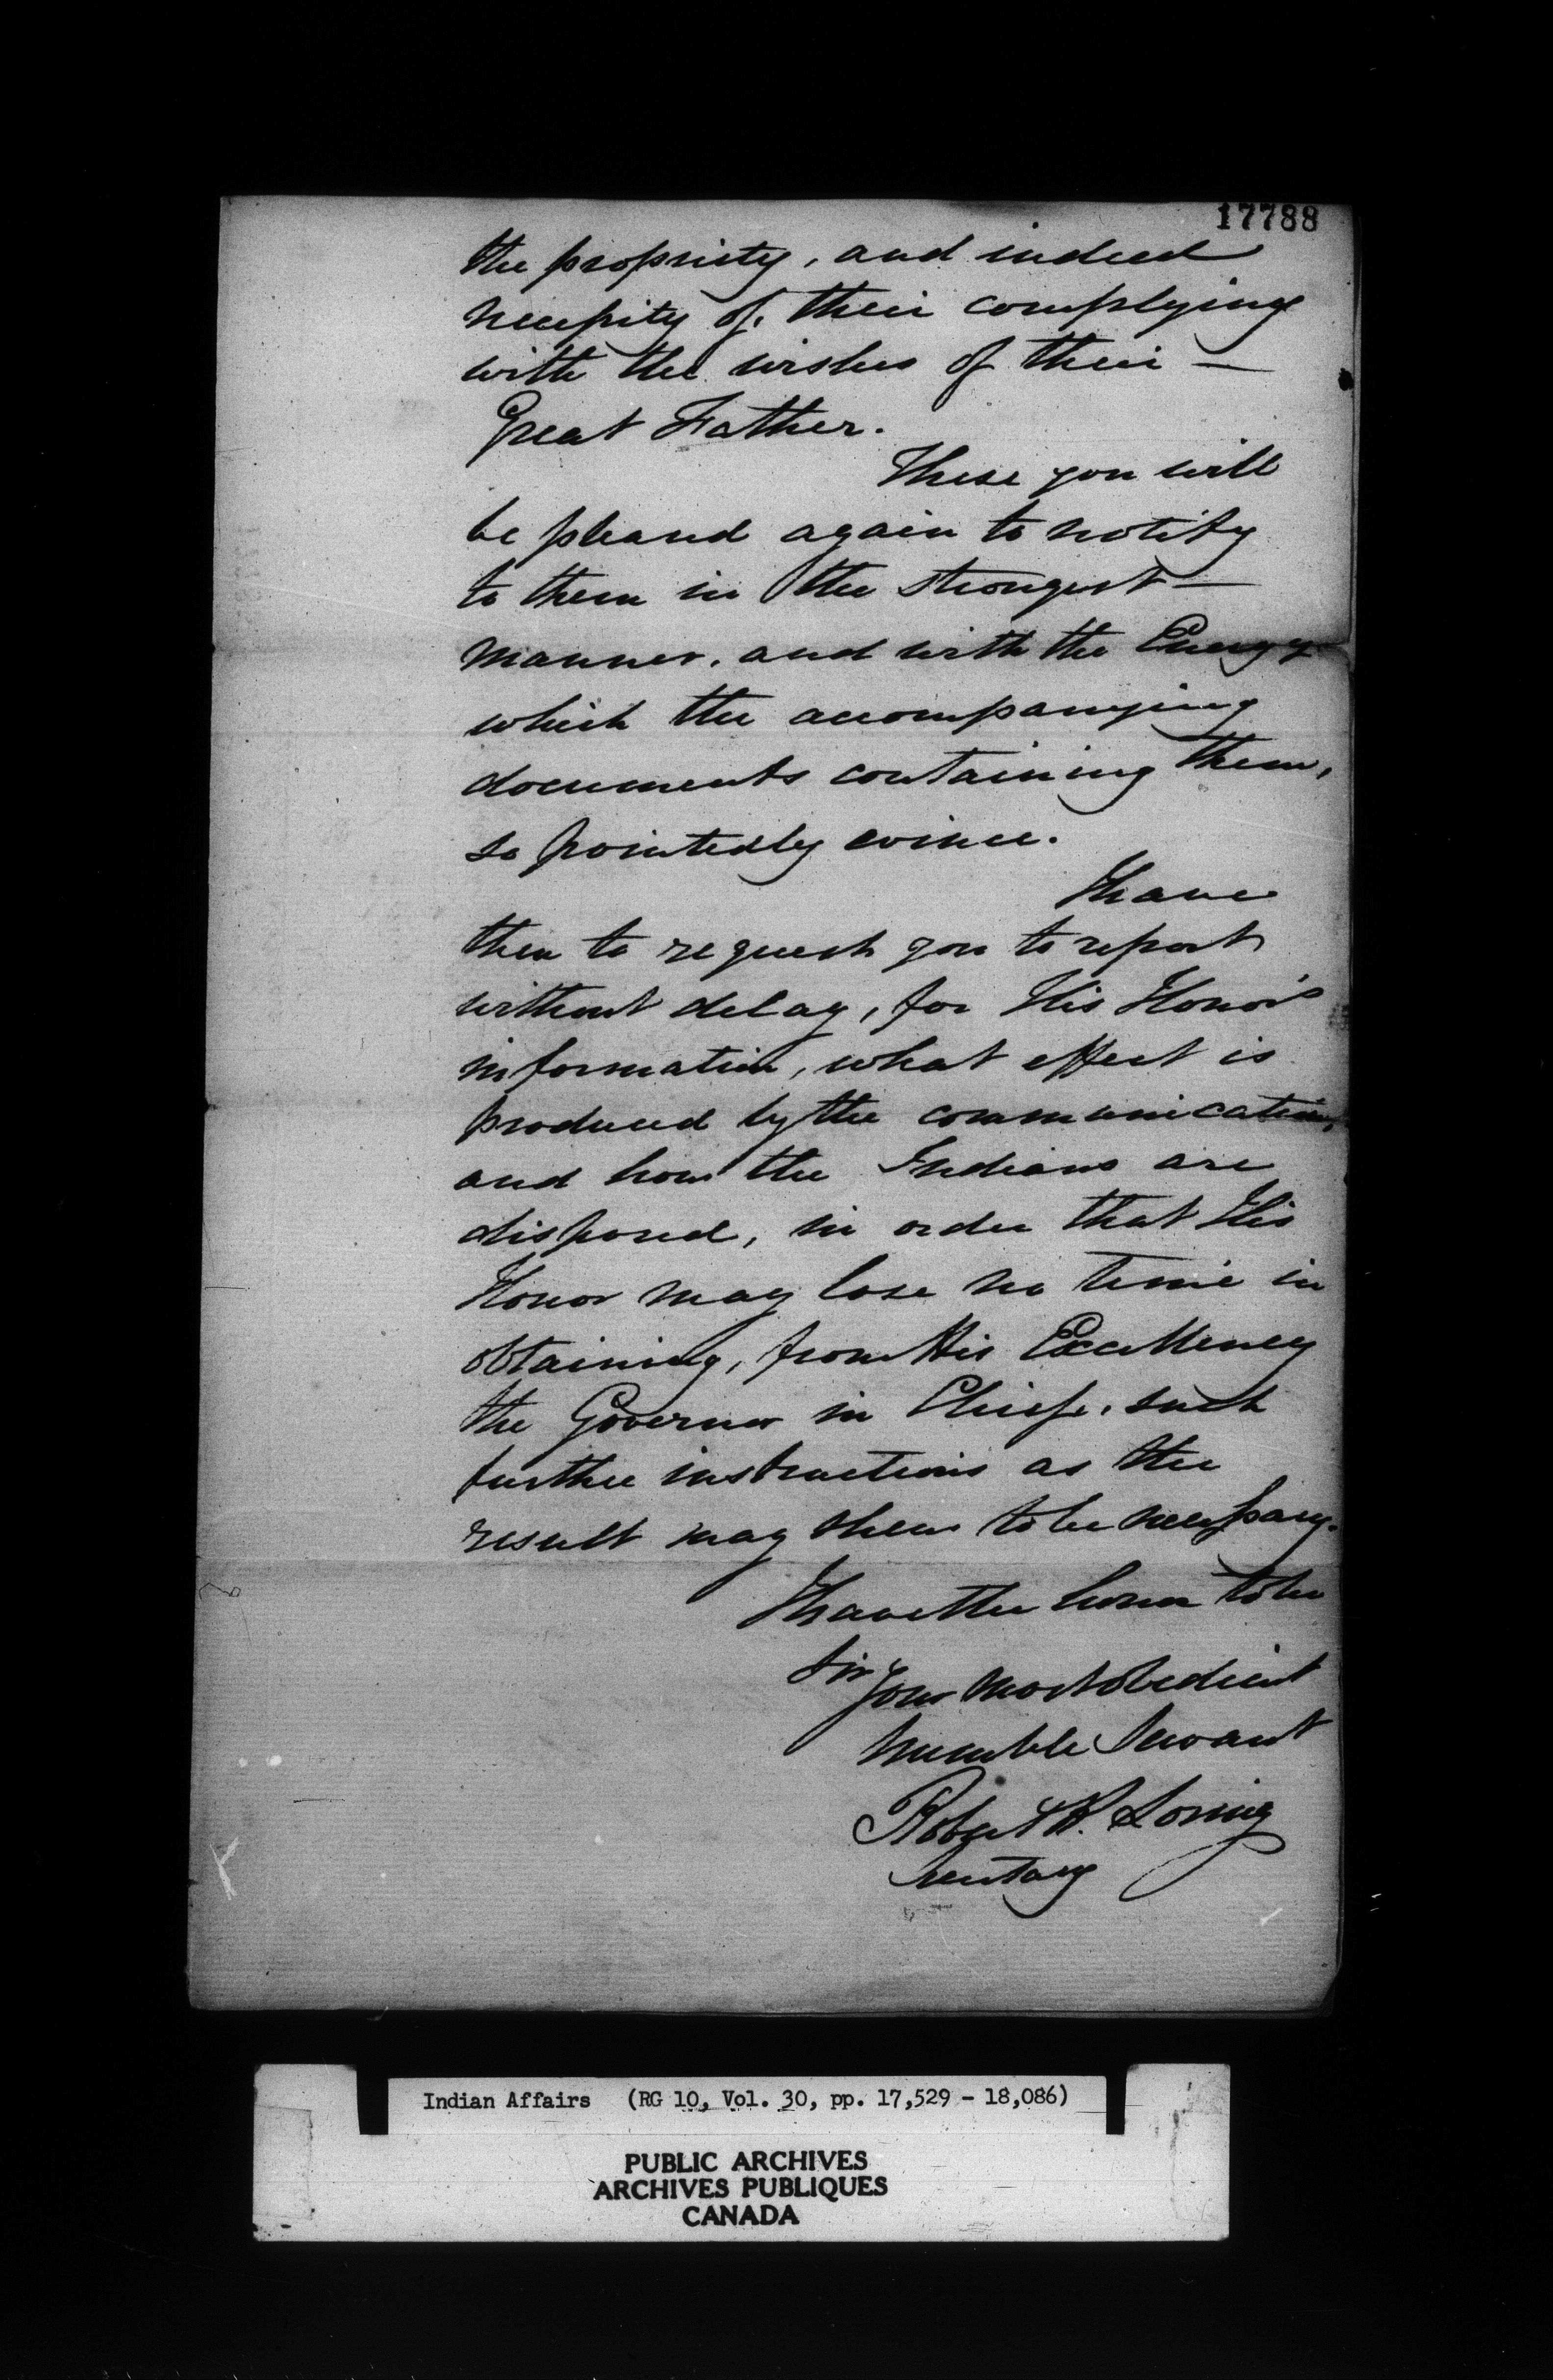 17788
the propriety, and indeed
necessity of, their complying
with the wishes of their —
Great Father.
These you will
be pleased again to notify
to them in the strongest —
manner, and with the Energy
which the accompanying
documents containing them,
so pointedly evince.
I have
then to request you to report
without delay, for His Honor's
information, what effect is
produced by the communication,
and how the Indians are
disposed, in order that His
Honor may lose no time in
obtaining, from His Excellency
the Governor in Chief, such
further instructions as the
result may shew to be necessary.
I have the honor to be
Sir
Your most obedient
humble Servant
Robert R. Loring
Secretary
Indian Affairs (RG 10, Vol. 30, pp. 17,529 - 18,086)
PUBLIC ARCHIVES
ARCHIVES PUBLIQUES
CANADA